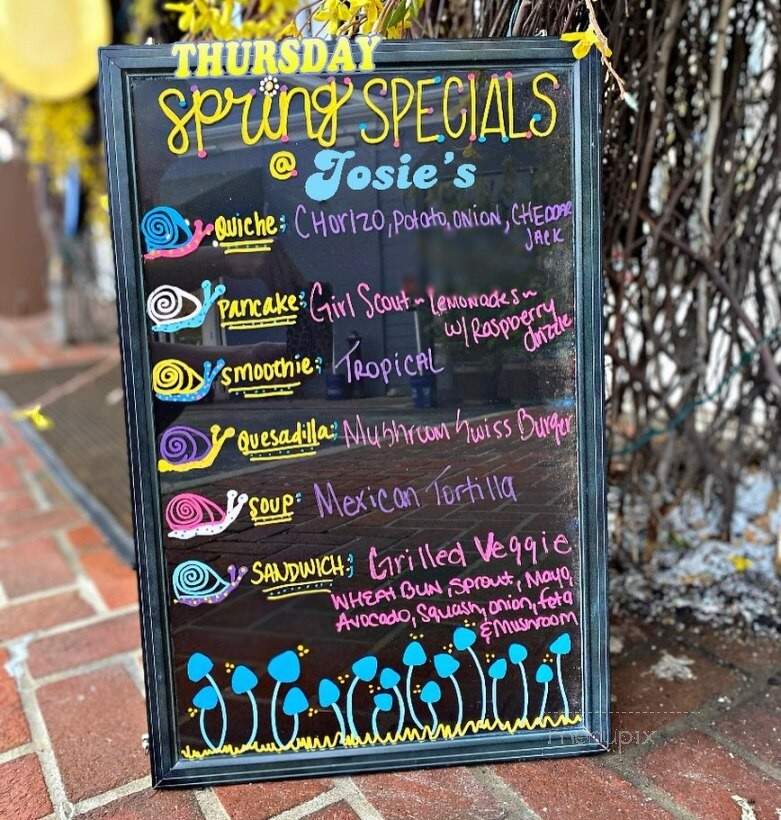 THURSDAY
spring SPECIALS
@ Josie's
Quiche: CHORIZO, Potato, onion, CHEDDAR
JACK
Pancake: Girl Scout ~ Lemonades ~
w/ Raspberry
drizzle
Smoothie: TROPICAL
Quesadilla: Mushroom Swiss Burger
Soup: Mexican Tortilla
SANDWICH: Grilled Veggie
WHEAT BUN, Sprout, Mayo,
Avocado, Squash, onion, feta
& Mushroom
menupix